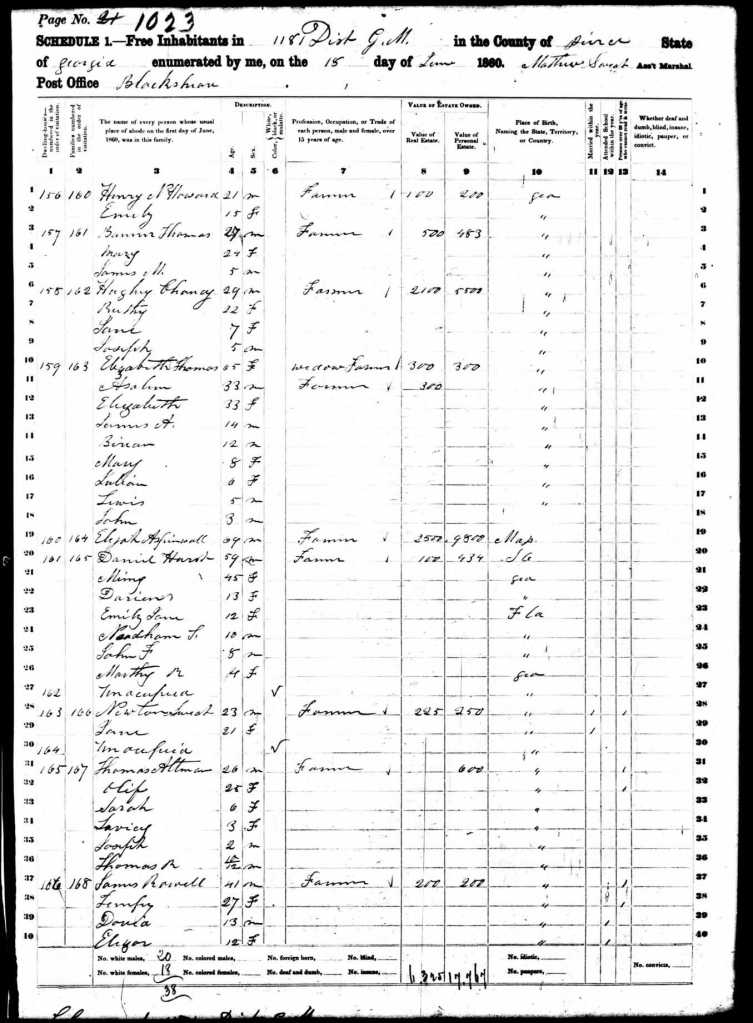 Page No. 24 1023
SCHEDULE 1.—Free Inhabitants in 1181 Dist G. M. in the County of Pierce State
of Georgia enumerated by me, on the 18 day of June 1860. Mathew Sweat Ass't Marshal.
Post Office Blackshear
DESCRIPTION. VALUE OF ESTATE OWNED.
Dwelling-houses— numbered in the order of visitation. Families numbered in the order of visitation. The name of every person whose usual place of abode on the first day of June, 1860, was in this family. Age. Sex. Color, White, black, or mulatto. Profession, Occupation, or Trade of each person, male and female, over 15 years of age. Value of Real Estate. Value of Personal Estate. Place of Birth, Naming the State, Territory, or Country. Married within the year. Attended School within the year. Whether deaf and dumb, blind, insane, idiotic, pauper, or convict.
1 2 3 4 5 6 7 8 9 10 11 12 13 14
1 156 160 Henry N Howard 21 m Farmer 1 100 200 Geo 1
2 Emily 15 f " 2
3 157 161 Thomas 27 m Farmer 1 500 483 " 3
4 Mary 24 F " 4
5 James M. 5 m " 5
6 158 162 Hughy Chancy 29 m Farmer 1 2100 5500 " 6
7 Ruthy 22 F " 7
8 Jane 7 F " 8
9 Joseph 5 m " 9
10 159 163 Elizabeth Thomas 65 F widow Farmer 1 300 300 " 10
11 33 m Farmer 1 300 " 11
12 Elizabeth 33 f " 12
13 James A. 14 m " 13
14 12 m " 14
15 Mary 8 F " 15
16 6 F " 16
17 Lewis 5 m " 17
18 John 3 m 18
19 160 164 Elijah Aspinwall 69 m Farmer 2500 9800 19
20 161 165 Daniel 59 m Farmer 100 434 S C 20
21 45 F Geo 21
22 13 F " 22
23 Emily Jane 12 F Fla 23
24 Needham T. 10 m " 24
25 John F 8 m " 25
26 Marthy R 4 F Geo 26
27 162 Unocupied √ " 27
28 163 166 Newton Sweat 23 m Farmer 1 225 250 " 1 1 28
29 Jane 21 f " 1 29
30 164 Unocupied √ " 30
31 165 167 Thomas Altman 26 m Farmer 1 600 " 1 31
32 25 F " 1 32
33 Sarah 6 F " 33
34 3 F " 34
35 Joseph 2 m " 35
36 Thomas R m " 36
37 166 168 James Rowell 41 m Farmer 1 200 200 " 1 37
38 27 F " 1 38
39 13 m " 1 39
40 12 F " 1 40
No. white males, 20 No. colored males, No. foreign born, No. blind, No. idiotic,
No. white females, 18 No. colored females, No. deaf and dumb, No. insane, 6325 17.967 No. paupers, No. convicts,
38